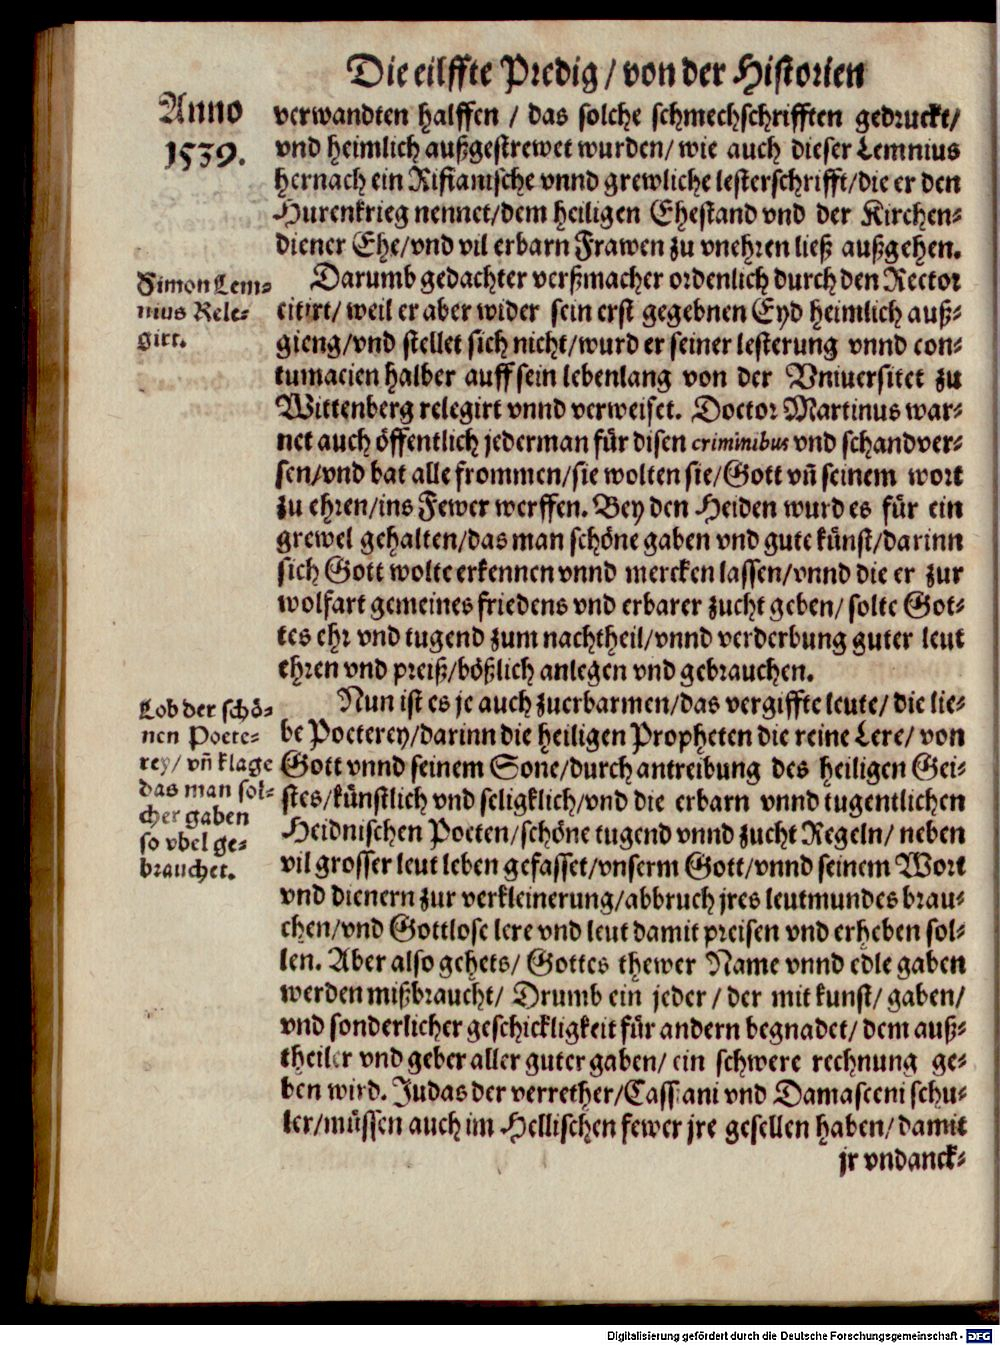 Die eilffte Predig / von der Historien
Anno
1539.
verwandten halffen / das solche schmechschrifften gedruckt/
vnd heimlich außgestrewet wurden/ wie auch dieser Lemnius
hernach ein Rifianische vnnd grewliche lesterschrifft/die er den
Hurenkrieg nennet/dem heiligen Ehestand vnd der Kirchen-
diener Ehe/vnd vil erbarn Frawen zu vnehren ließ außgehen.
Simon Lem-
nius Rele-
girt.
Darumb gedachter verßmacher ordenlich durch den Rector
citirt/ weil er aber wider sein erst gegebnen Eyd heimlich auß-
gieng/vnd stellet sich nicht/wurd er seiner lesterung vnnd con-
tumacien halber auff sein lebenlang von der Vniuersitet zu
Wittenberg relegirt vnnd verweiset. Doctor Martinus war-
net auch öffentlich jederman für disen criminibus vnd schandver-
sen/vnd bat alle frommen/sie wolten sie/Gott vn̄ seinem wort
zu ehren/ins Fewer werffen. Bey den Heiden wurd es für ein
grewel gehalten/das man schöne gaben vnd gute künst/darinn
sich Gott wolte erkennen vnnd mercken lassen/vnnd die er zur
wolfart gemeines friedens vnd erbarer zucht geben/ solte Got-
tes ehr vnd tugend zum nachtheil/vnnd verderbung guter leut
ehren vnd preiß/bößlich anlegen vnd gebrauchen.
Lob der schö-
nen Poete-
rey/ vn̄ klage
das man sol-
cher gaben
so vbel ge-
brauchet.
Nun ist es je auch zuerbarmen/das vergiffte leute/ die lie-
be Poeterey/darinn die heiligen Propheten die reine Lere/ von
Gott vnnd seinem Sone/durch antreibung des heiligen Gei-
stes/künstlich vnd seligklich/vnd die erbarn vnnd tugentlichen
Heidnischen Poeten/schöne tugend vnnd zucht Regeln/ neben
vil grosser leut leben gefasset/vnserm Gott/vnnd seinem Wort
vnd dienern zur verkleinerung/abbruch jres leutmundes brau-
chen/vnd Gottlose lere vnd leut damit preisen vnd erheben sol-
len. Aber also gehets/ Gottes thewer Name vnnd edle gaben
werden mißbraucht/ Drumb ein jeder / der mit kunst/ gaben/
vnd sonderlicher geschickligkeit für andern begnadet/ dem auß-
theiler vnd geber aller guter gaben/ ein schwere rechnung ge-
ben wird. Judas der verrether/Cassiani vnd Damasceni schu-
ler/müssen auch im Hellischen fewer jre gesellen haben/ damit
jr vndanck-
Digitalisierung gefördert durch die Deutsche Forschungsgemeinschaft - DFG